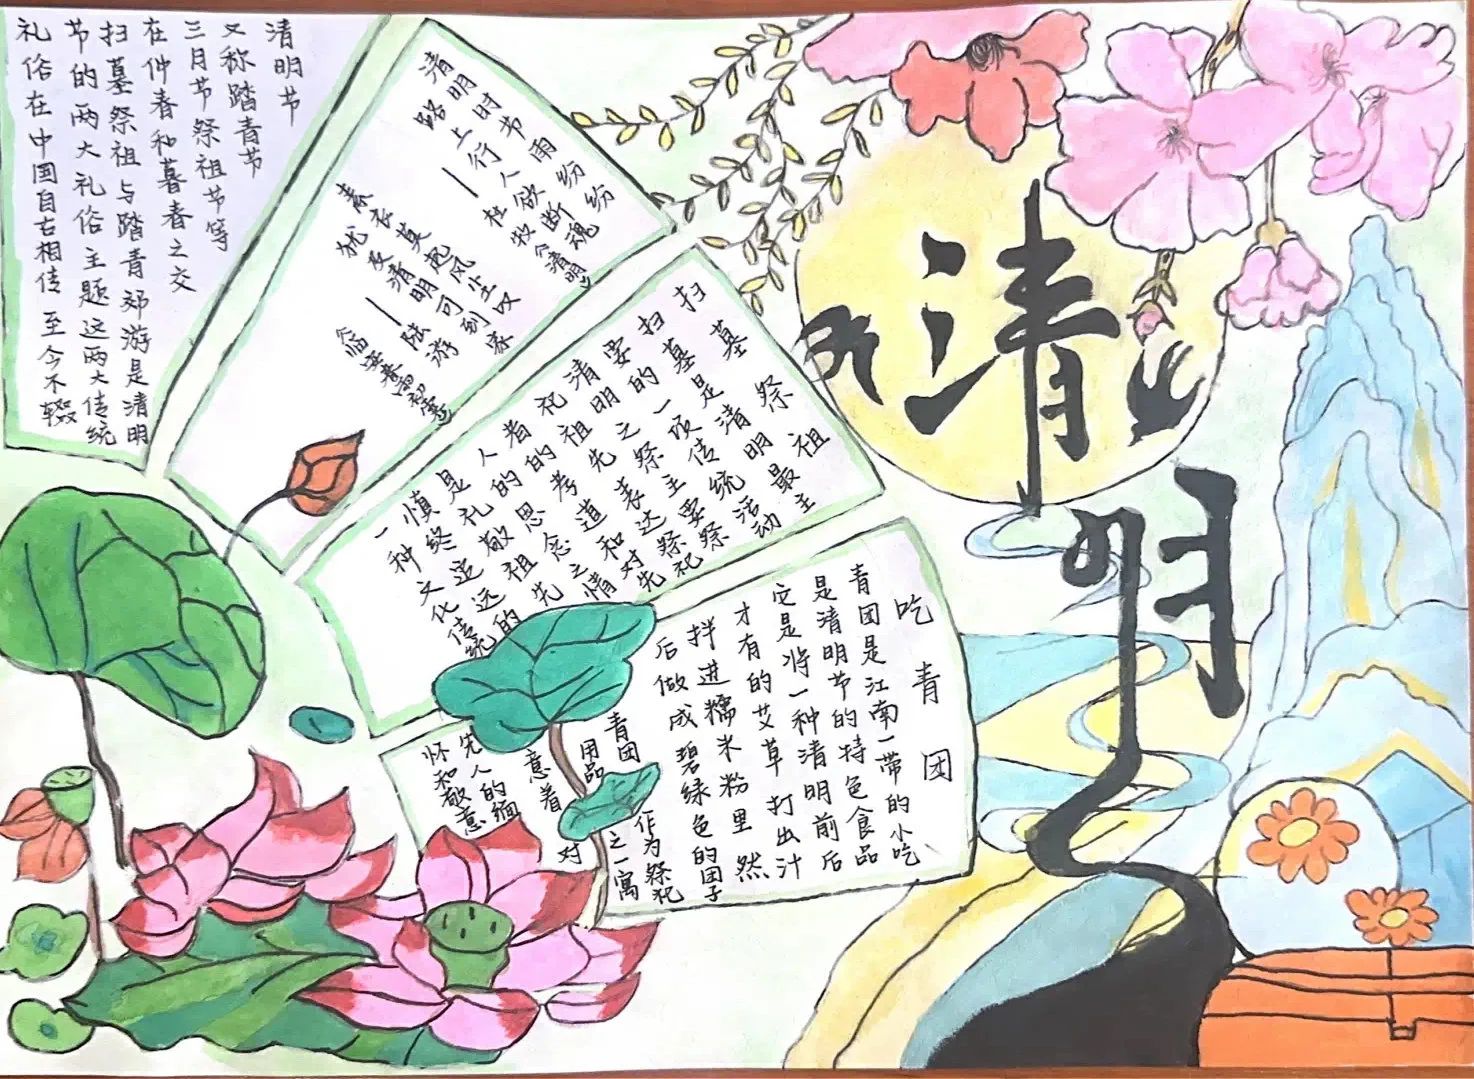 清明节
又称踏青节
三月节祭祖节等
在仲春和暮春之交
扫墓祭祖与踏青郊游是清明
节的两大礼俗主题这两大传统
礼俗在中国自古相传 至今不辍
清明时节雨纷纷
路上行人欲断魂
——杜牧《清明》
素衣莫起风尘叹
犹及清明可到家
——陆游
《临安春雨初霁》
扫墓祭祖
扫墓是清明最主
要的一项传统活动
清明之祭主要祭
祀祖先表达祭祀
者的孝道和对先
人的思念之情
是礼敬祖先
慎终追远的
一种文化传统
吃青团
青团是江南一带的小吃
是清明节的特色食品
它是将一种清明前后
才有的艾草 打出汁
拌进糯米粉里 然
后做成碧绿色的团子
青团 作为祭祀
用品 之一寓
意着 对
先人的缅
怀和敬意
清明